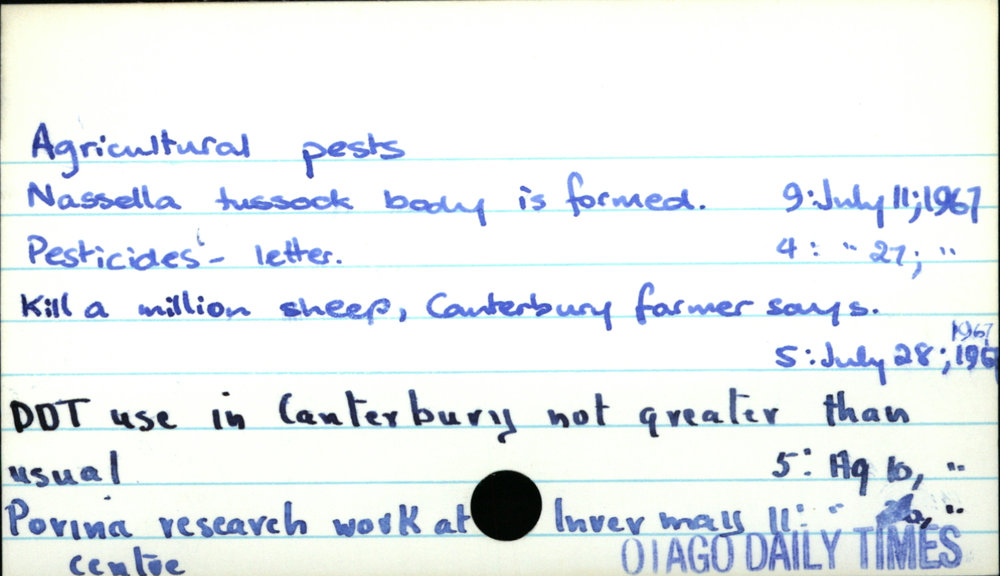 Agricultural pests
Nassella tussock body is formed. 9:July 11;1967
Pesticides - letter. 4: " 27; "
Kill a million sheep, Canterbury farmer says.
1967
5:July 28;196
DDT use in Canterbury not greater than
usual 5: Ag 10, "
Porina research work at Invermay 11: " "
centre
OTAGO DAILY TIMES